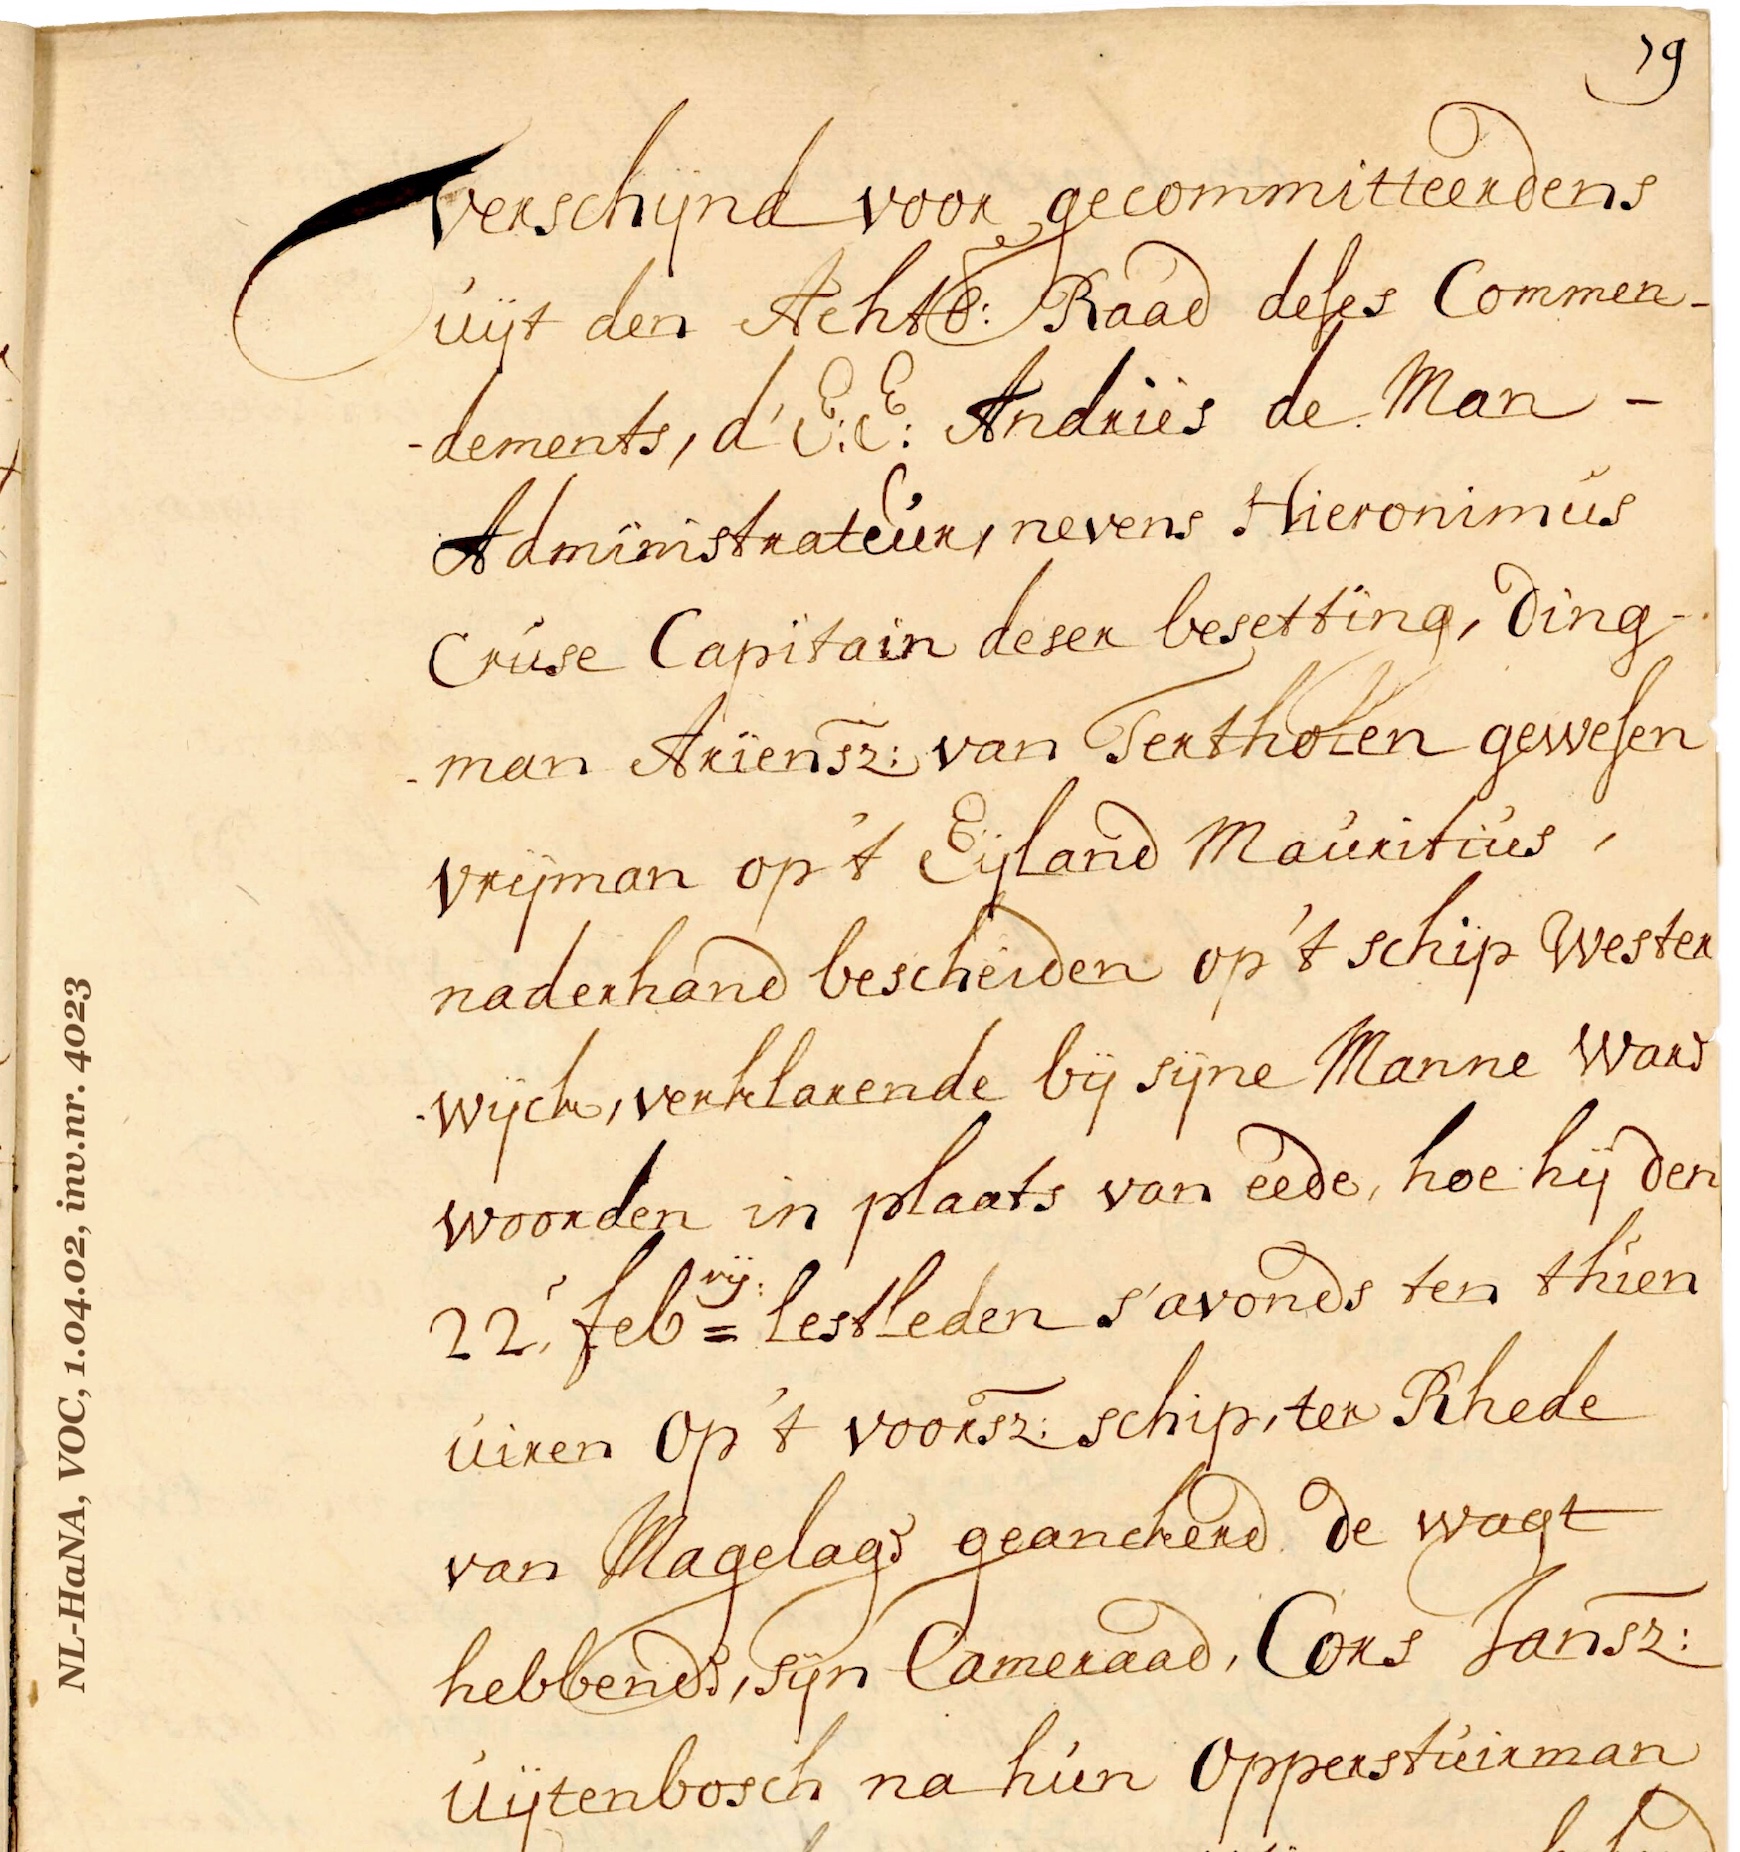 79
verschijnd voor gecommitteerdens
uijt den Achtb: Raad deses Commen-
-dements, d' E: E: Andries de Man -
Administrateur, nevens Hieronimus
Cruse Capitain deser besetting, Ding-
-man Ariensz: van Tertholen gewesen
vrijman op 't Eijland Mauritius,
naderhand bescheiden op 't schip Wester
-wijck, verklarende bij sijne Manne Waar
woorden in plaats van eede, hoe hij den
22, feb=rij: lestleden s'avonds ten thien
uiren op 't voorsz: schip, ter Rhede
van Magelage geanckerd de wagt
hebbende, sijn Cameraad, Cors Jansz:
Uijtenbosch na hun Opperstuirman
NL-HaNA, VOC, 1.04.02, inv.nr. 4023